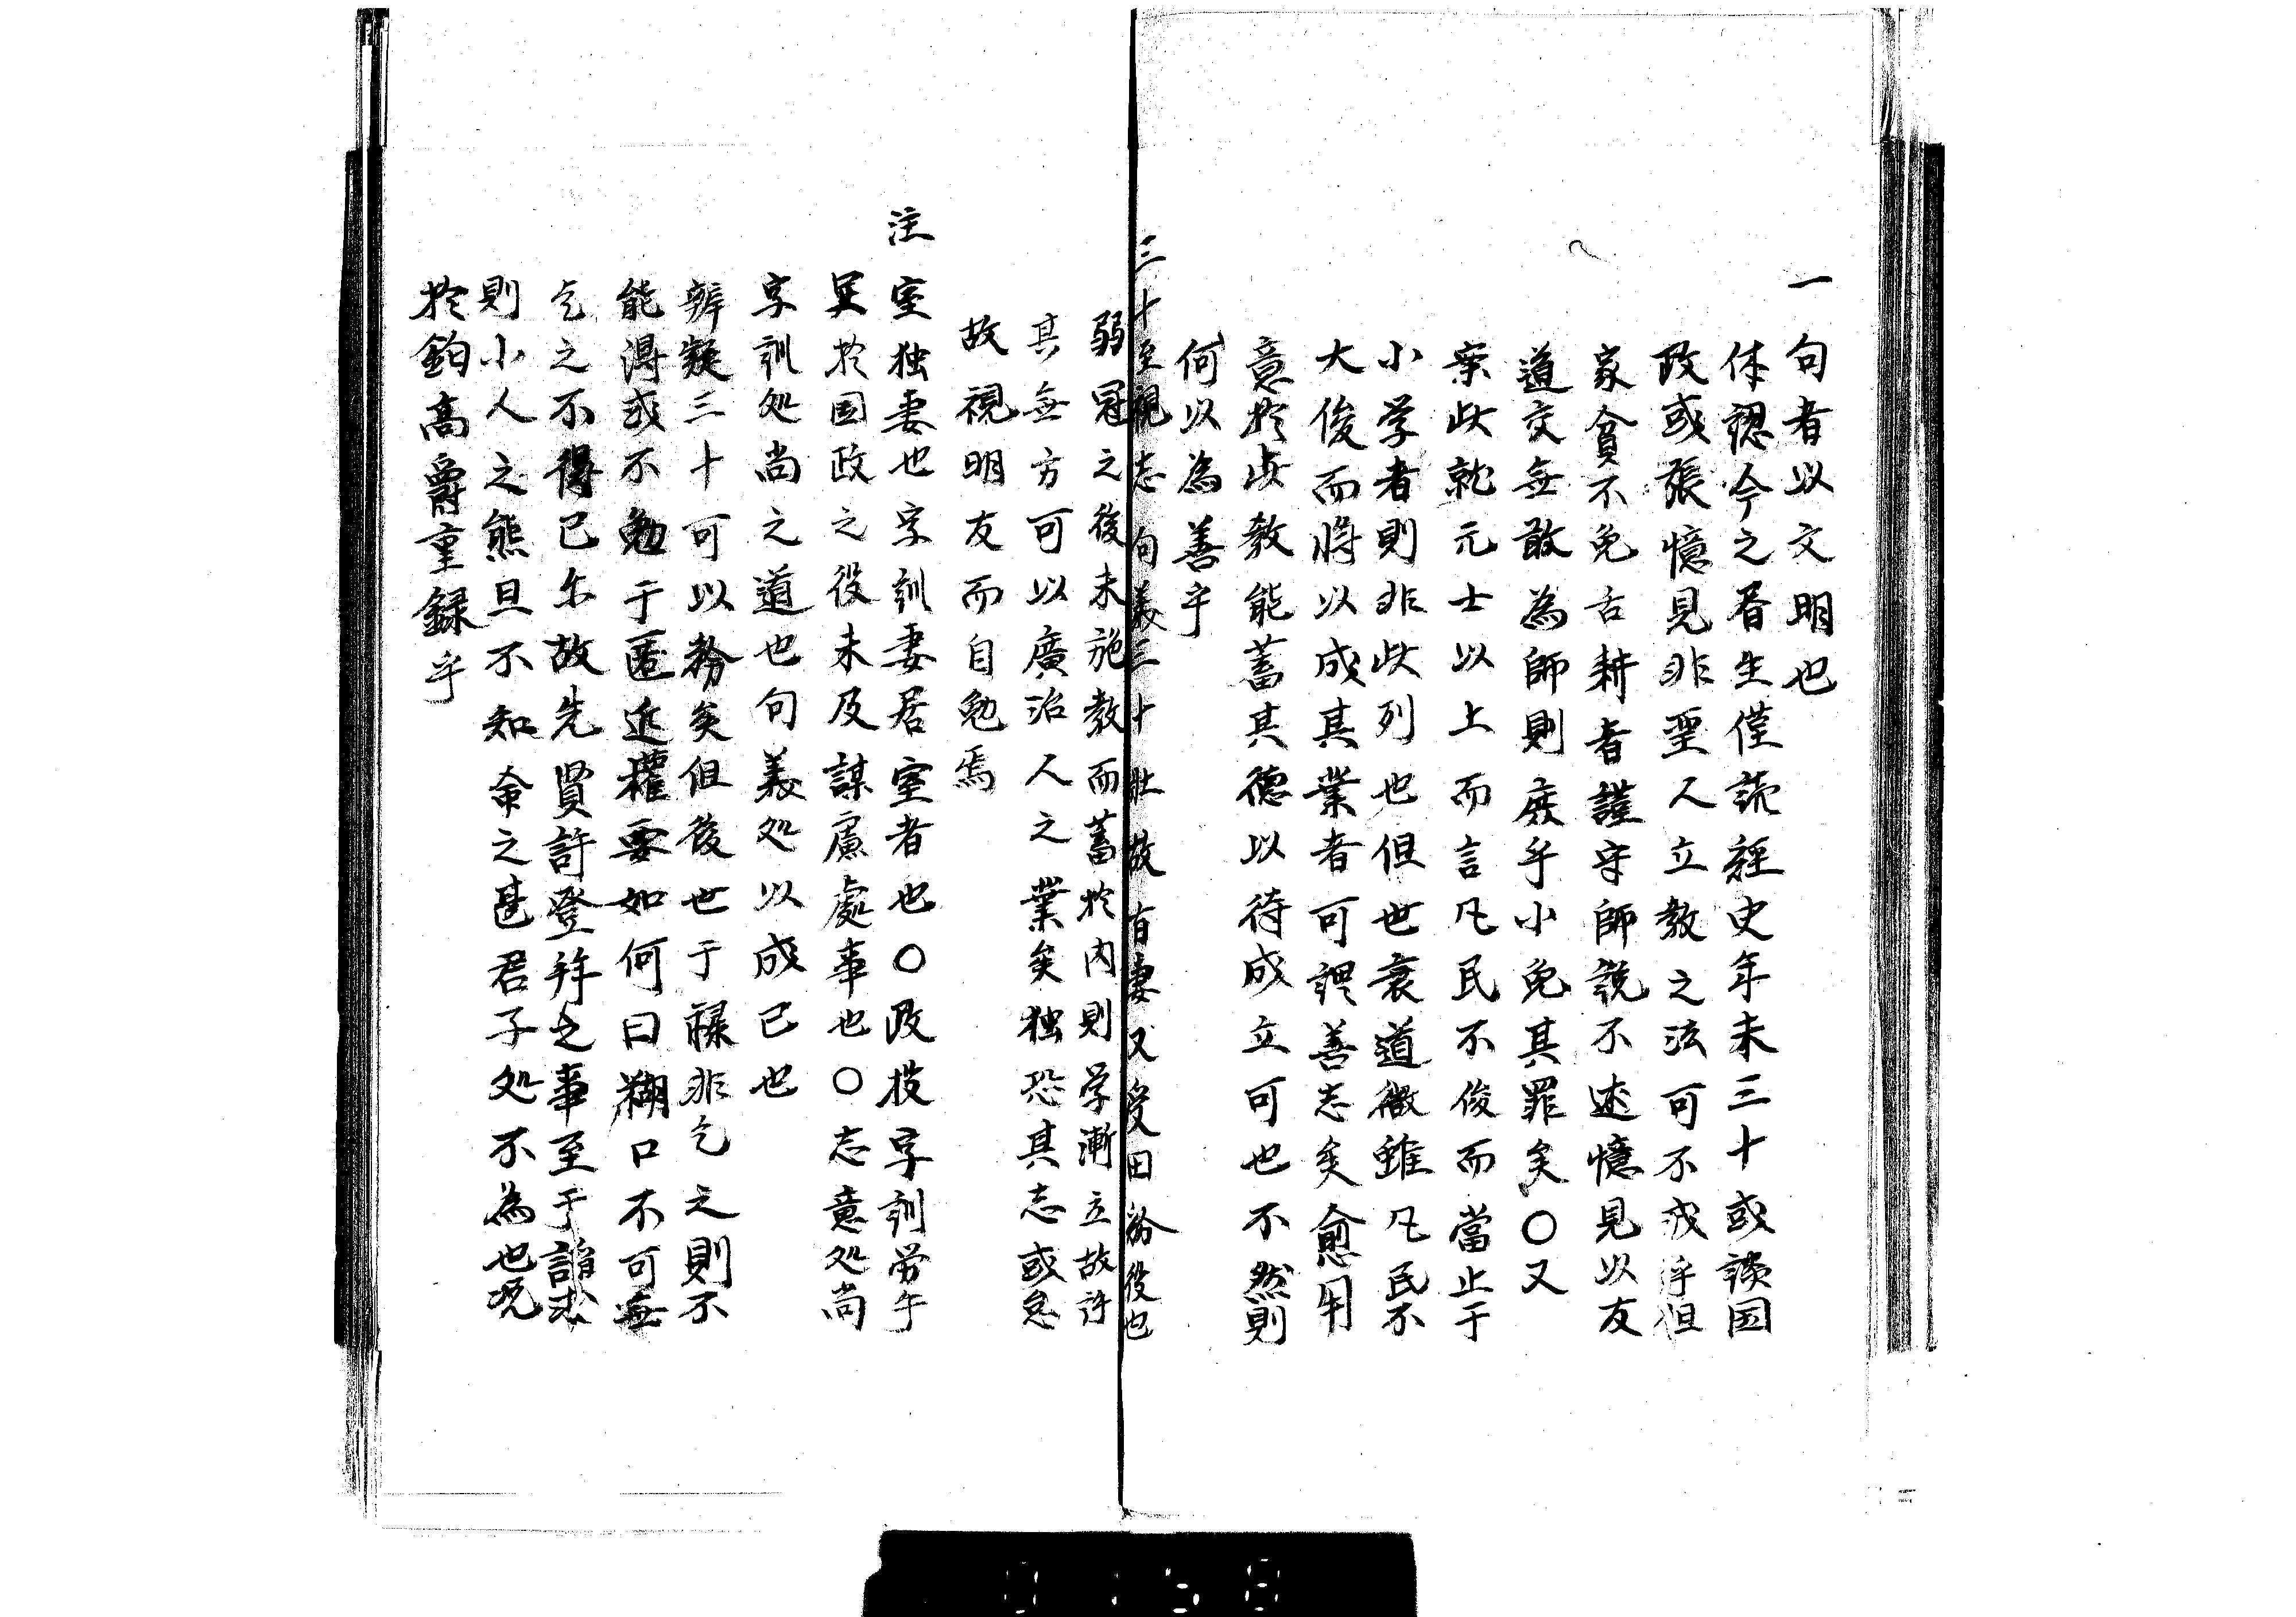 一句者以文明也
体認今之眉生僅読経史年未三十或談国
政或張憶見非聖人立教之法可不戒乎但
家貧不免舌耕者謹守師説不述憶見以友
道交無敢為師則庶乎小免其罪矣〇又
案此就元士以上而言凡民不俊而當止于
小学者則非此列也但世衰道微雖凡民不
大俊而将以成其業者可謂善志矣愈用
意於此教能蓄其徳以待成立可也不然則
何以為善乎
三十至視志句義三十壮故有妻又受田給役也
弱冠之後未施教而蓄於内則学漸立故許
其無方可以廣治人之業矣独恐其志或怠
故視明友而自勉焉
注
室独妻也字訓妻居室者也〇政授字訓労午
具於国政之役未及謀慮處事也〇志意処尚
字訓処尚之道也句義処以成已也
辨疑三十可以務矣但後世于禄非乞之則不
能得或不勉于匿近権要如何曰糊口不可無
乞之不得已尓故先賢許登拝之事至于諂求
則小人之熊旦不知命之甚君子処不為也况
於鈞高爵重録乎